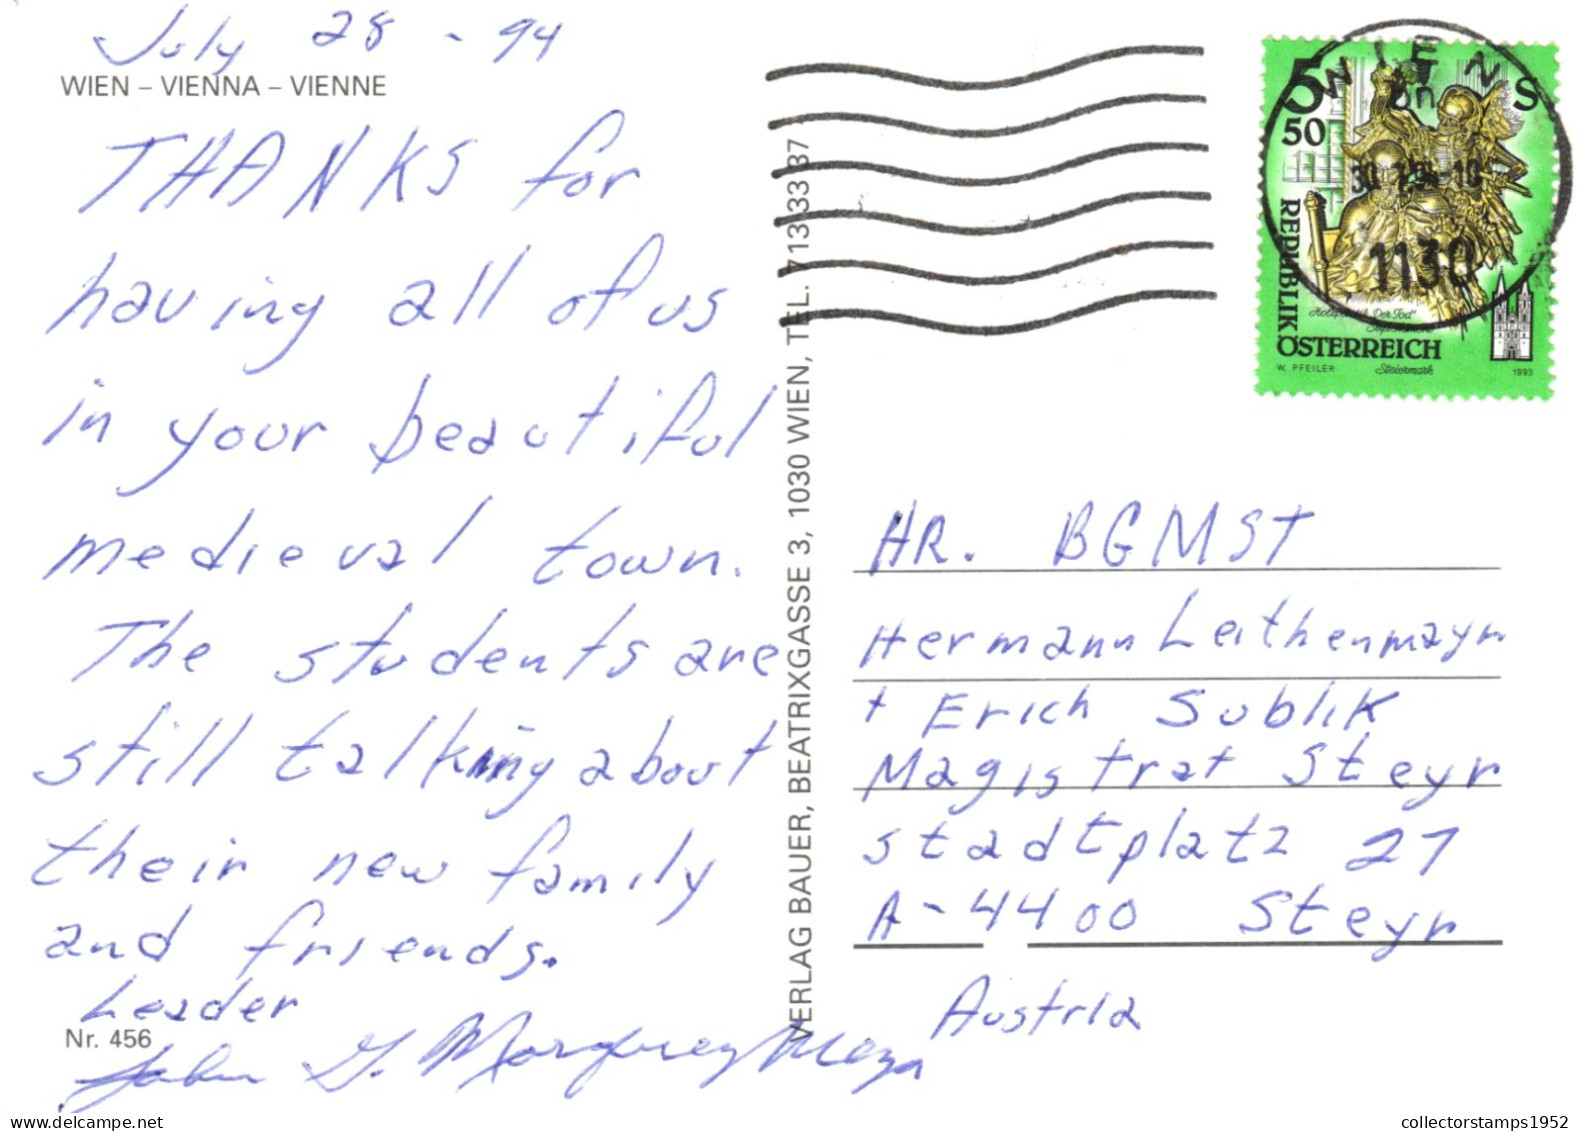 July 28 - 94
WIEN – VIENNA – VIENNE
THANKS for
having all of us
in your beautiful
medieval town.
The students are
still talking about
their new family
and friends.
Leader
Nr. 456
John G.
VERLAG BAUER, BEATRIXGASSE 3, 1030 WIEN, TEL. 713 33 87
WIEN
1130
5 S
50
REPUBLIK
ÖSTERREICH
W. PFEILER
Steiermark
1993
HR. BGMST
Hermann Leithenmayr
+ Erich Sublik
Magistrat Steyr
stadtplatz 27
A-4400 Steyr
Austria
collectorstamps1952